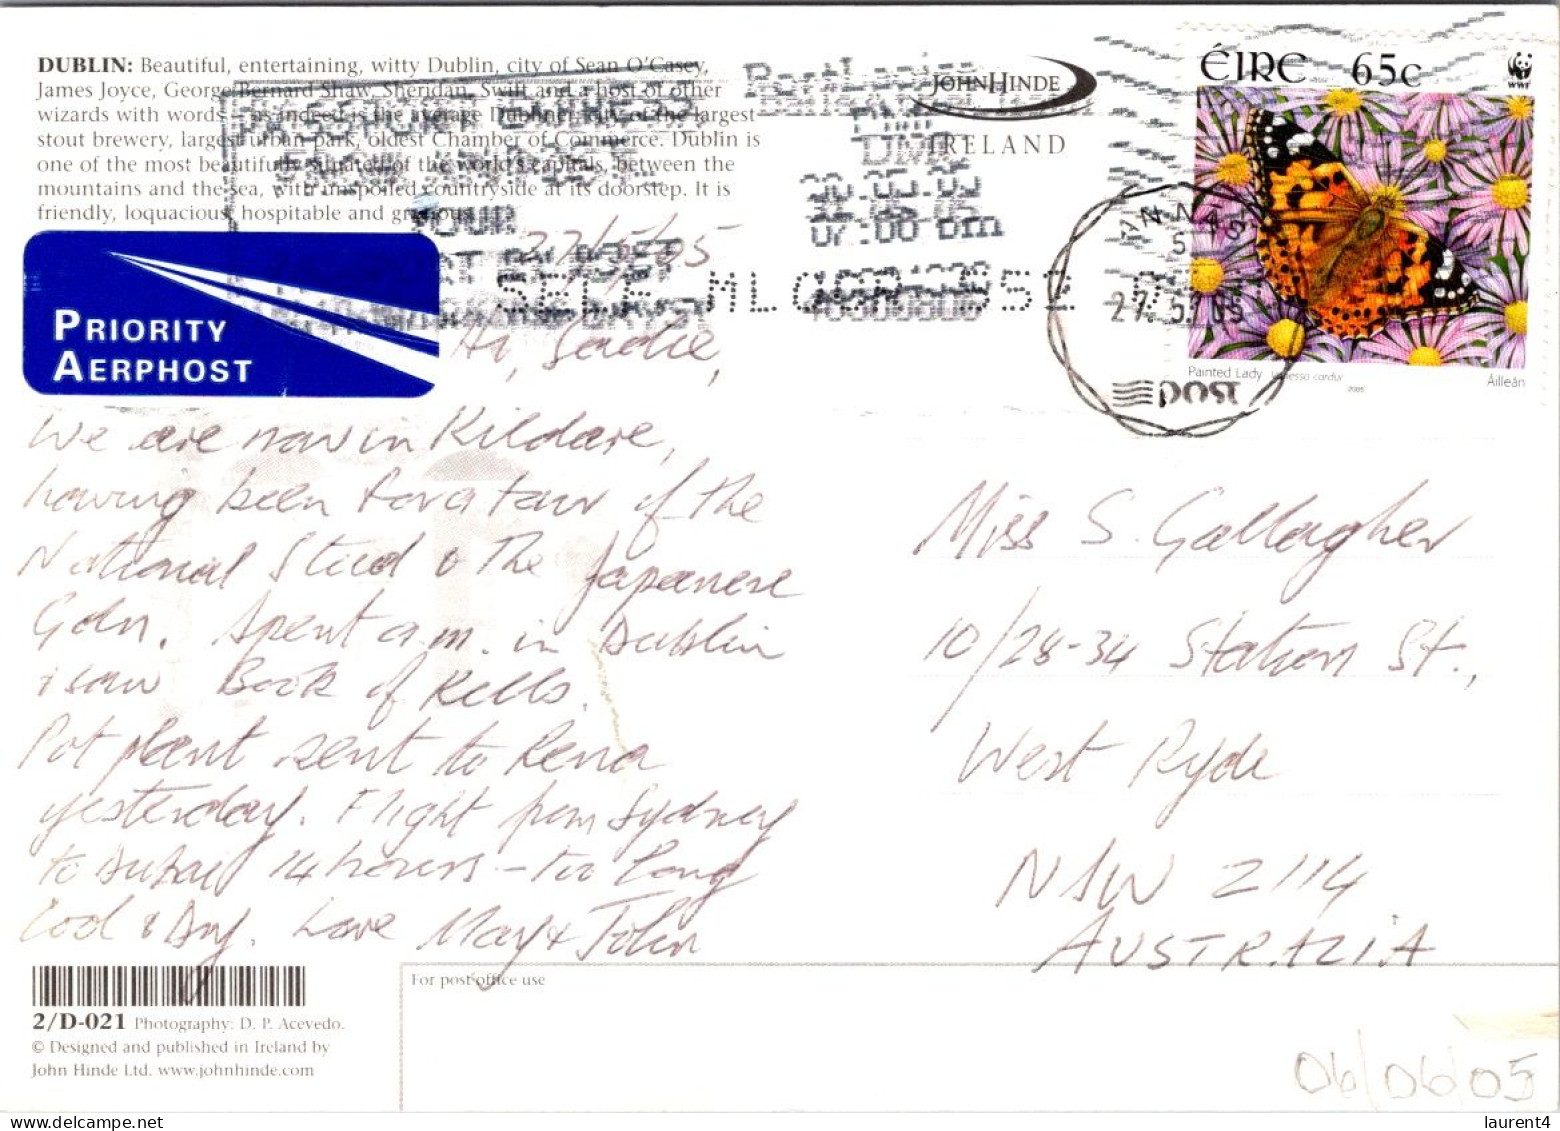 DUBLIN: Beautiful, entertaining, witty Dublin, city of Sean O'Casey,
James Joyce, George Bernard Shaw, Sheridan, Swift and a host of other
wizards with words - as indeed is the average Dubliner, city of the largest
stout brewery, largest urban park, oldest Chamber of Commerce. Dublin is
one of the most beautifully situated of the world's capitals, between the
mountains and the sea, with unspoiled countryside at its doorstep. It is
friendly, loquacious, hospitable and gracious.
JOHN HINDE
IRELAND
ÉIRE 65c
WWF
Painted Lady Vanessa cardui
2005
Áilleán
27. 5. 05
POST
PRIORITY
AERPHOST
27/5/05
Hi, Sadie,
We are now in Kildare,
having been for a tour of the
National Stud & the Japanese
Gdn. Spent a.m. in Dublin
& saw Book of Kells.
Pot plant sent to Rena
yesterday. Flight from Sydney
to Dubai 14 hours - too long
Love Mary & John
Miss S. Gallagher
10/28-34 Station St.,
West Ryde
NSW 2114
AUSTRALIA
2/D-021 Photography: D. P. Acevedo.
© Designed and published in Ireland by
John Hinde Ltd. www.johnhinde.com
For post office use
06/06/05
laurent4